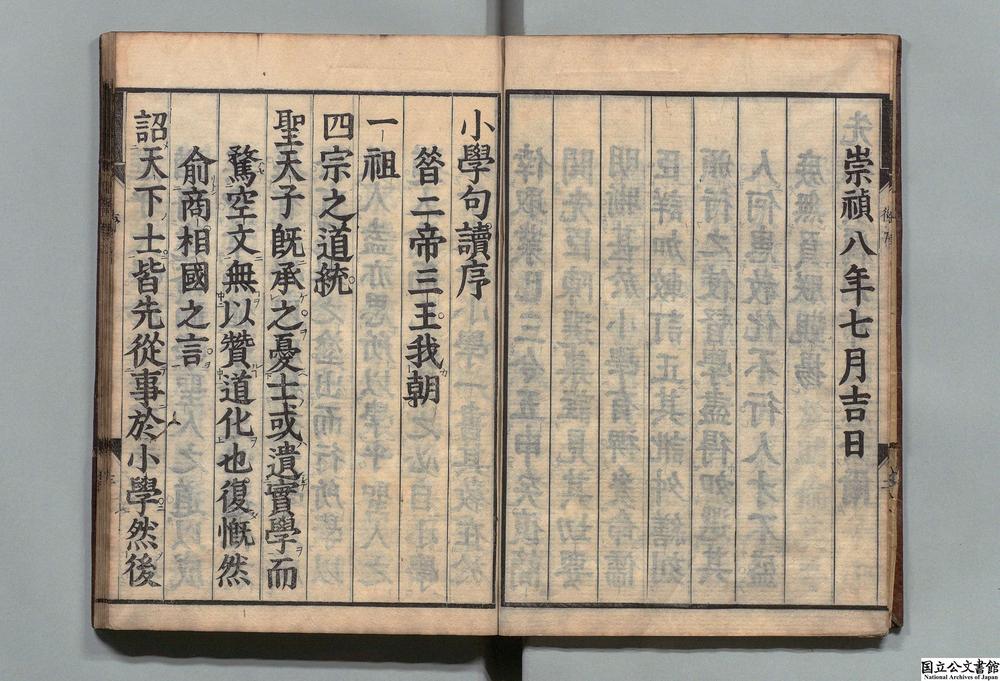 崇禎八年七月吉日
小學句讀序
昝二帝三王我朝
一祖
四宗之道統
聖天子旣承之憂士或遺實學而
騖空文無以贊道化也復慨然
俞商相國之言
詔天下士皆先從事於小學然後
国立公文書館
National Archives of Japan